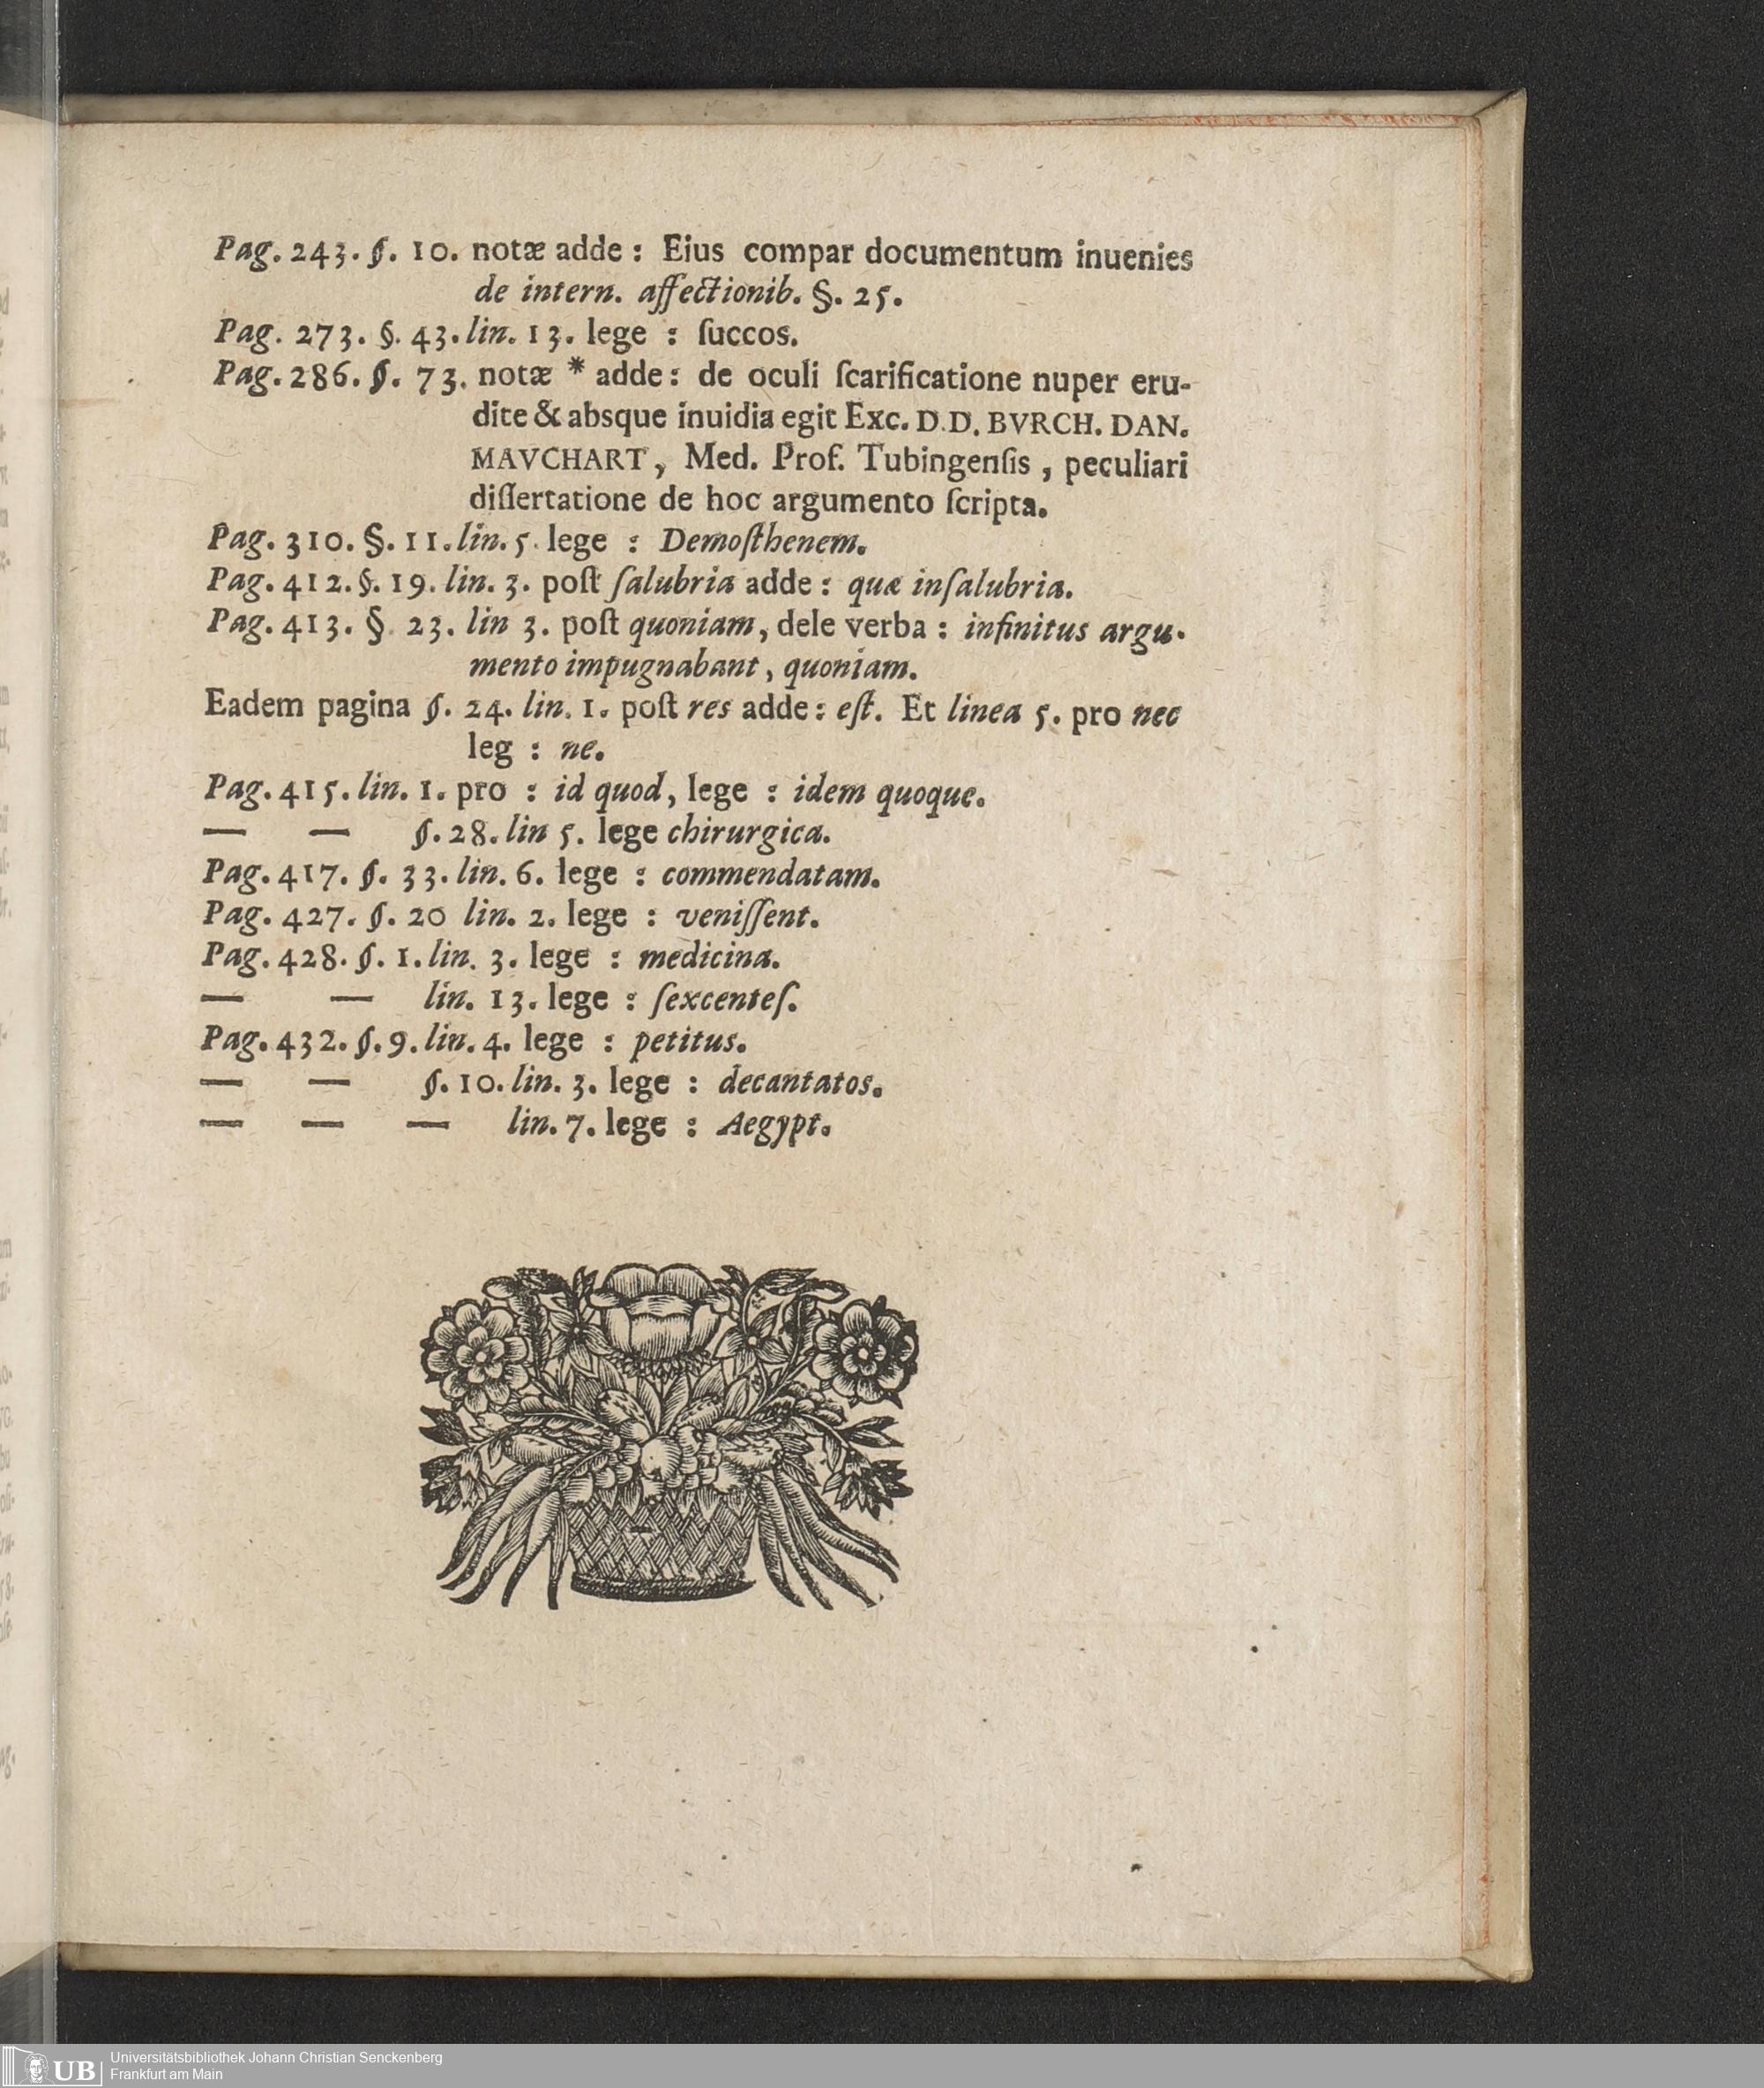 Pag. 243. §. 10. notæ adde : Eius compar documentum inuenies
de intern. affectionib. §. 25.
Pag. 273. §. 43. lin. 13. lege : ſuccos.
Pag. 286. §. 73. notæ * adde : de oculi ſcarificatione nuper eru-
dite & absque inuidia egit Exc. D. D. BVRCH. DAN.
MAVCHART, Med. Prof. Tubingenſis, peculiari
diſſertatione de hoc argumento ſcripta.
Pag. 310. §. 11. lin. 5. lege : Demoſthenem.
Pag. 412. §. 19. lin. 3. poſt ſalubria adde : quæ inſalubria.
Pag. 413. § 23. lin 3. poſt quoniam, dele verba : infinitus argu-
mento impugnabant, quoniam.
Eadem pagina §. 24. lin. 1. poſt res adde : eſt. Et linea 5. pro nec
leg : ne.
Pag. 415. lin. 1. pro : id quod, lege : idem quoque.
— — §. 28. lin 5. lege chirurgica.
Pag. 417. §. 33. lin. 6. lege : commendatam.
Pag. 427. §. 20 lin. 2. lege : veniſſent.
Pag. 428. §. 1. lin. 3. lege : medicina.
— — lin. 13. lege : ſexcenteſ.
Pag. 432. §. 9. lin. 4. lege : petitus.
— — §. 10. lin. 3. lege : decantatos.
— — — lin. 7. lege : Aegypt.
UB
Universitätsbibliothek Johann Christian Senckenberg
Frankfurt am Main